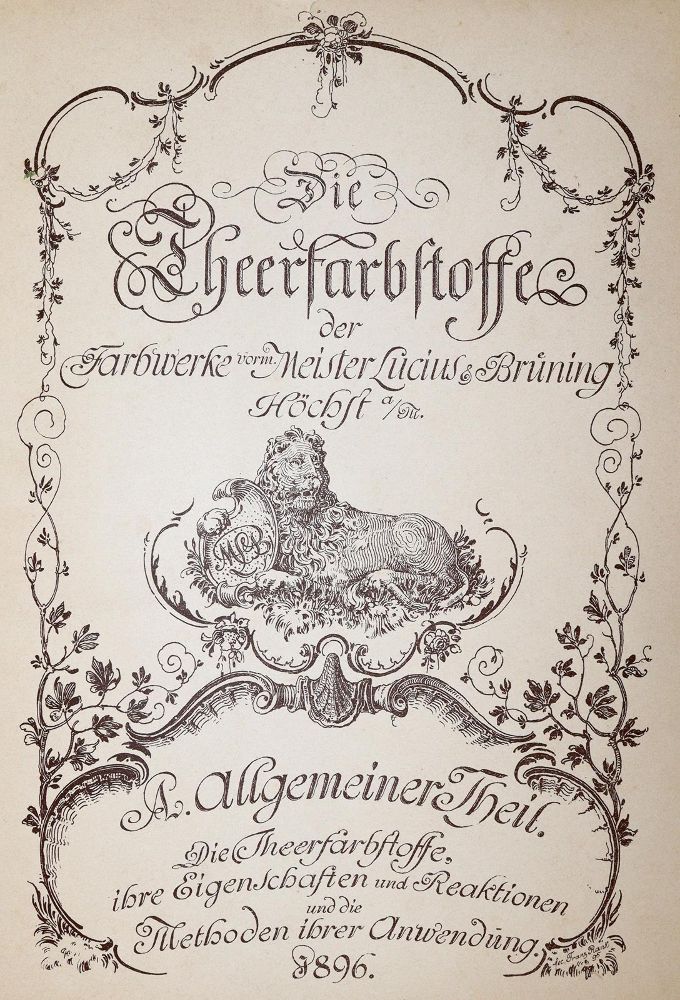 Die
Theerfarbstoffe
der
Farbwerke vorm. Meister Lucius & Brüning
Höchst a/M.
MLB
A. Allgemeiner Theil.
Die Theerfarbstoffe,
ihre Eigenschaften und Reaktionen
und die
Methoden ihrer Anwendung.
1896.